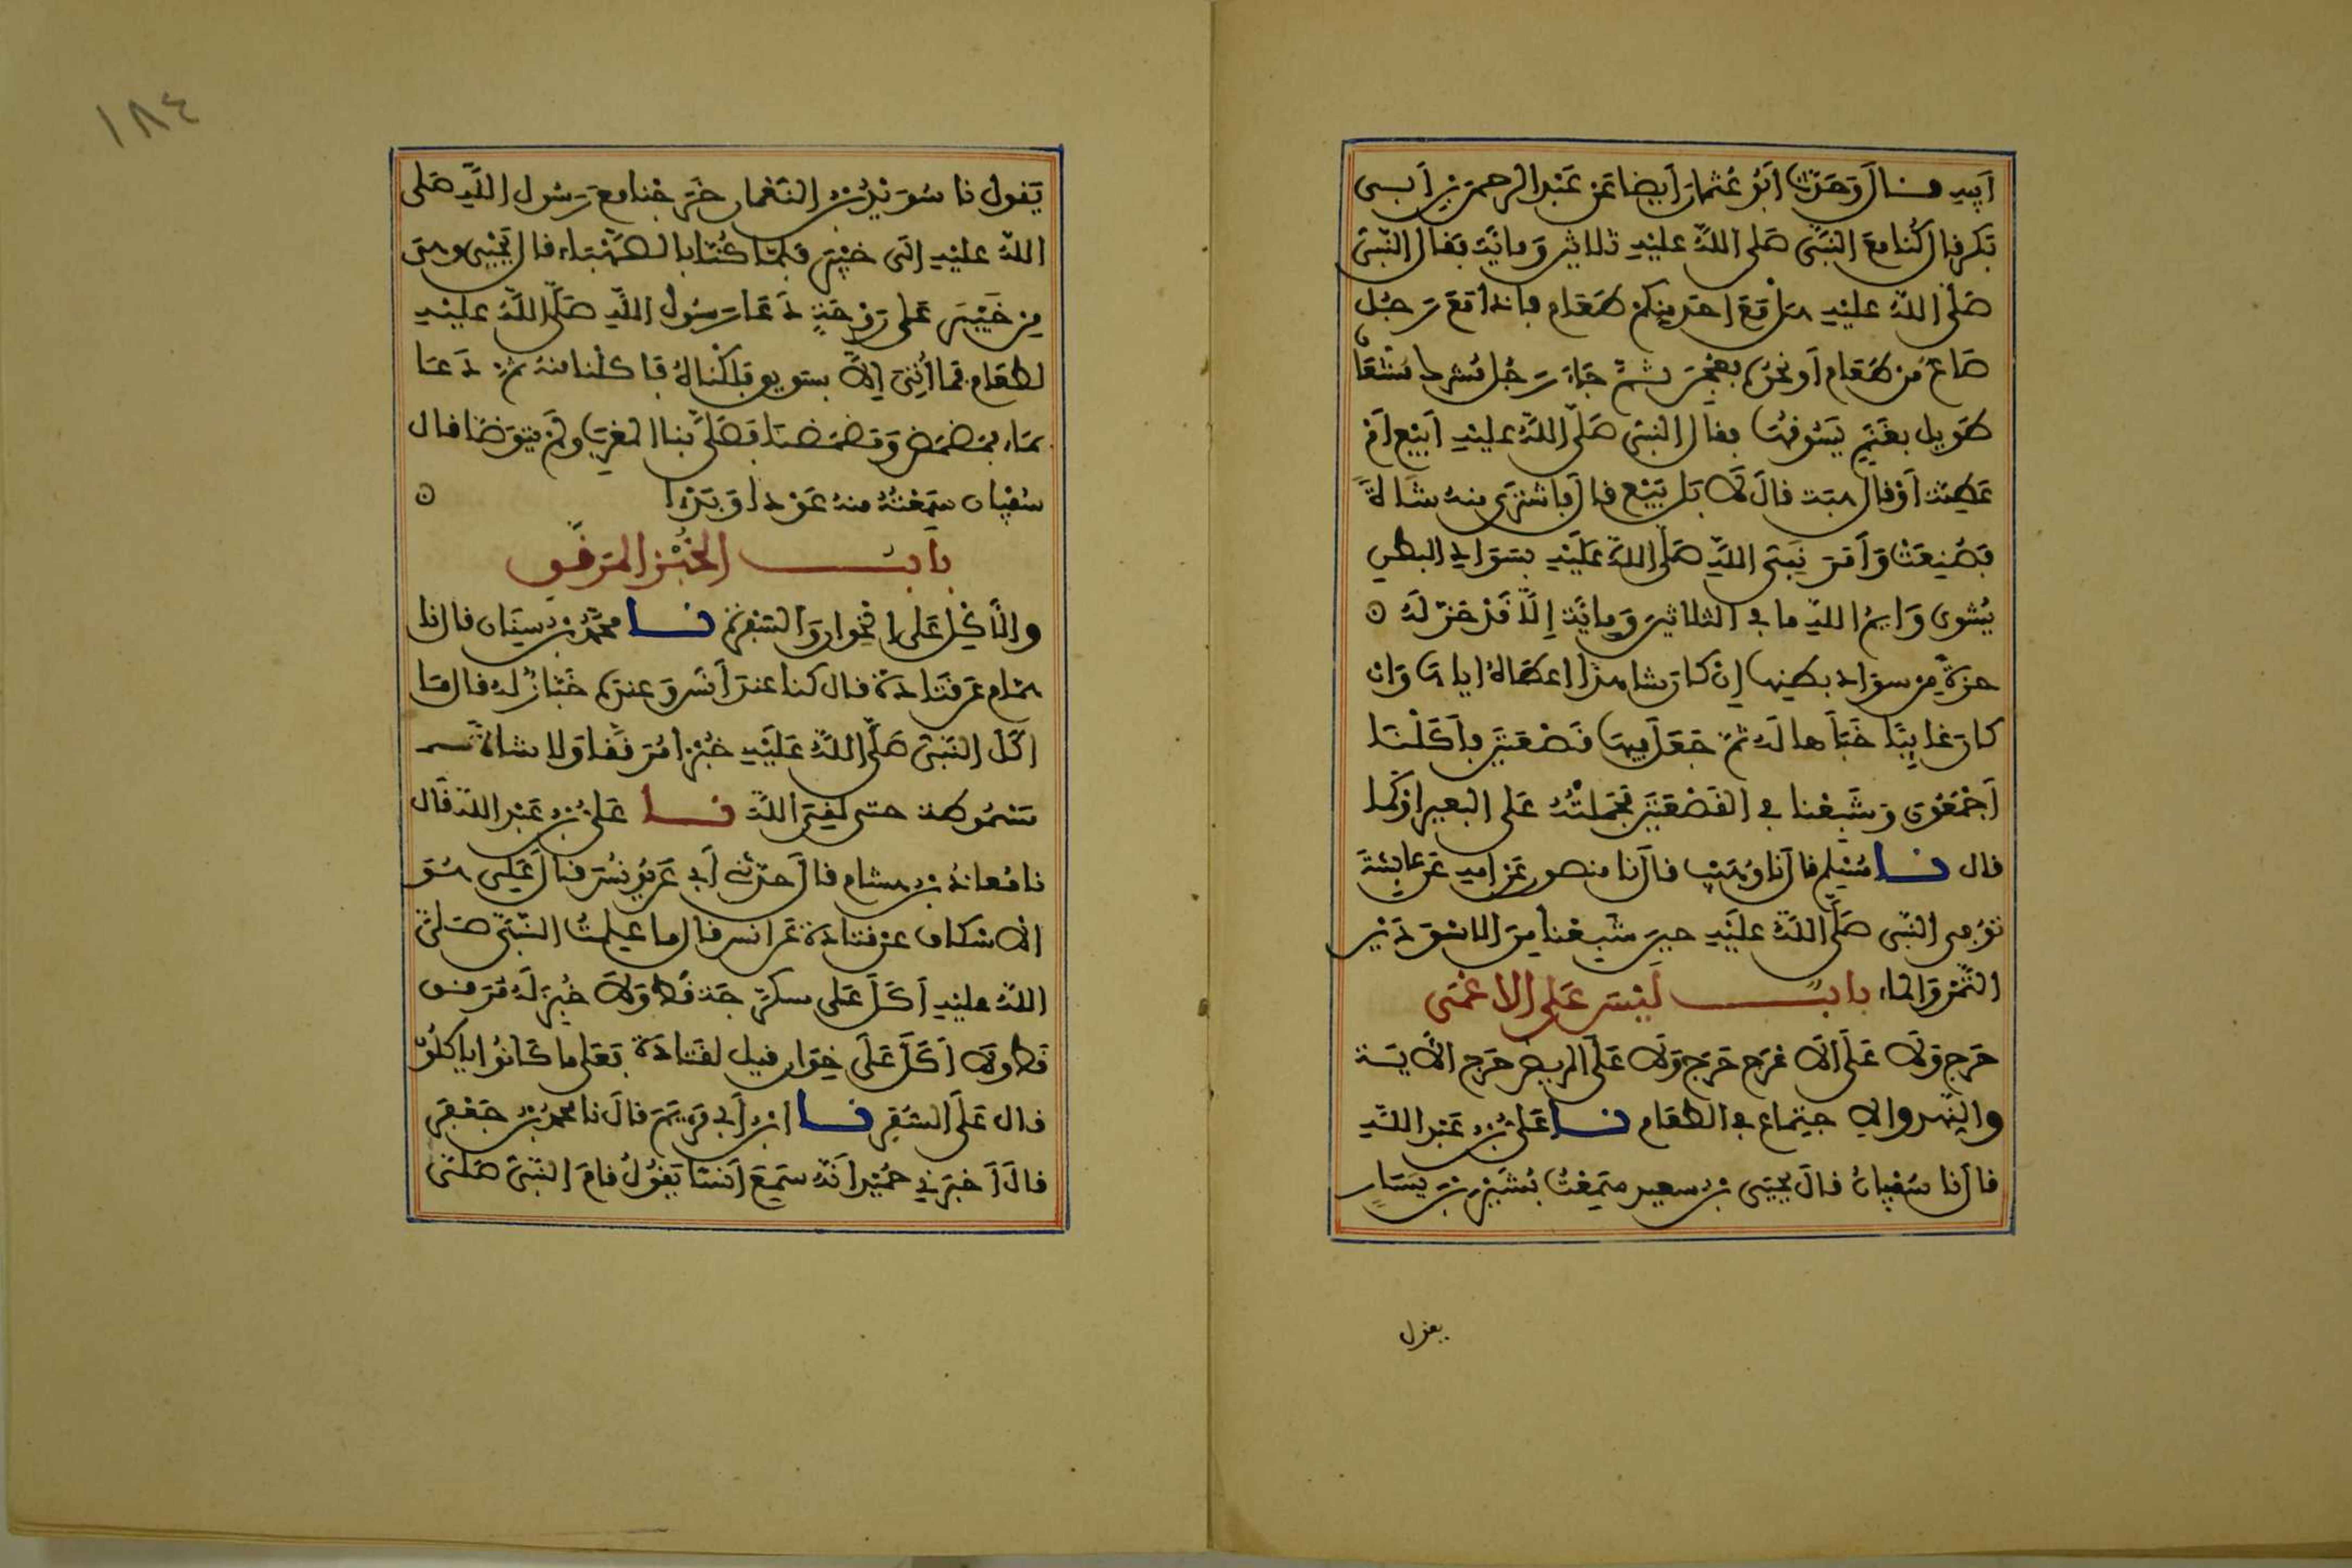 ابيه قال وحدثنا ابو عثمان ايضا عن عبد الرحمن بن ابى
بكر قال كنا مع النبى صلى الله عليه ثلاثين ومائة فقال النبى
صلى الله عليه هل مع احد منكم طعام فاذا مع رجل
صاع من طعام او نحوه فعجن ثم جاء رجل مشرك مشعان
طويل بغنم يسوقها فقال النبى صلى الله عليه ابيع ام
عطية او قال هبة قال لا بل بيع قال فاشترى منه شاة
فصنعت وامر نبى الله صلى الله عليه بسواد البطن
يشوى وايم الله ما فى الثلاثين ومائة الا قد حز له
حزة من سواد بطنها ان كان شاهدا اعطاه اياها وان
كان غايبا خبأها له ثم جعل فيها قصعتين فأكلنا
اجمعون وشبعنا وفى القصعتين فحملته على البعير او كما
قال نا مسلم قال نا وهيب قال نا منصور عن امه عن عايشة
توفى النبى صلى الله عليه حين شبعنا من الاسودين
التمر والماء باب ليس على الاعمى
حرج ولا على الاعرج حرج ولا على المريض حرج الاية
والنهد والاجتماع فى الطعام نا على بن عبد الله
قال نا سفيان قال يحيى بن سعيد سمعت بشير بن يسار
يقول
١٨٤
يقول نا سويد بن النعمان خرجنا مع رسول الله صلى
الله عليه الى خيبر فلما كنا بالصهباء قال يحيى وهى
من خيبر على روحة دعا رسول الله صلى الله عليه
بطعام فما اتى الا بسويق فلكناه فاكلنا منه ثم دعا
بماء فمضمض ومضمضنا فصلى بنا المغرب ولم يتوضا قال
سفيان سمعته منه عودا وبدءا
باب الخبز المرقق
والاكل على الخوان والسفرة نا محمد بن سنان قال نا
همام عن قتادة قال كنا عند انس وعنده خباز له قال ما
اكل النبى صلى الله عليه خبزا مرققا ولا شاة
مسموطة حتى لقى الله نا على بن عبد الله قال
نا معاذ بن هشام قال حدثنى ابى عن يونس قال على هو
الاسكاف عن قتادة عن انس قال ما علمت النبى صلى
الله عليه اكل على سكرجة قط ولا خبز له مرقق
قط ولا اكل على خوان قيل لقتادة فعلى ما كانوا ياكلون
قال على السفر نا ابن ابى مريم قال نا محمد بن جعفر
قال اخبرنى حميد انه سمع انسا يقول قام النبى صلى